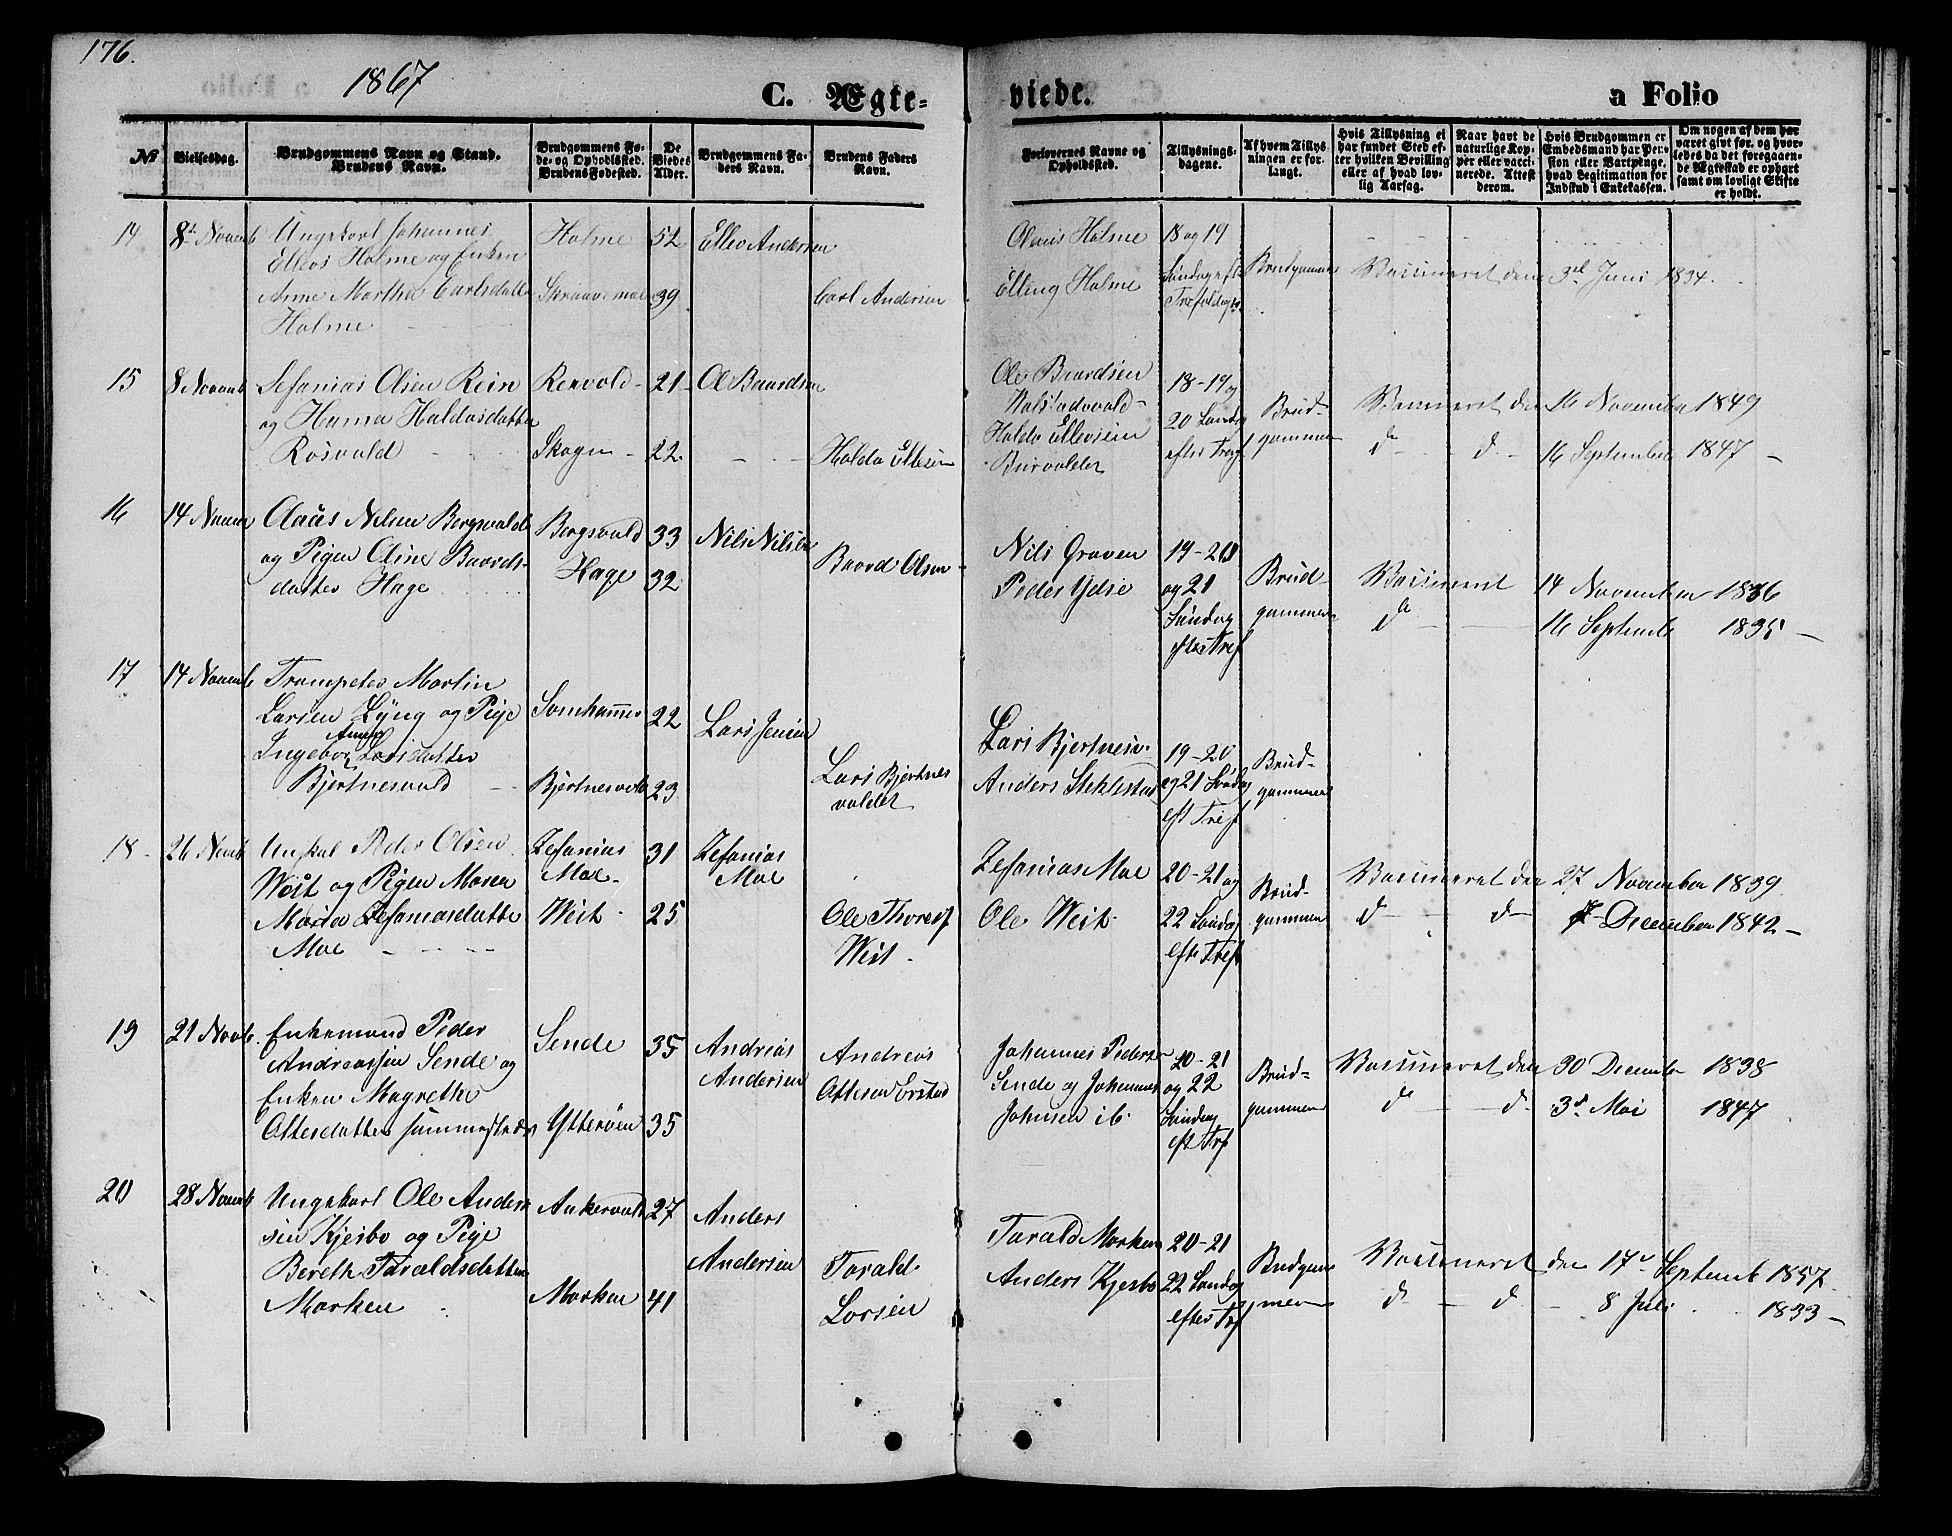 176.
1867
C. Ægte=
viede.
a Folio
№
Vielsesdag.
Brudgommens Navn og Stand.
Brudens Navn.
Brudgommens Fø-
de- og Opholdssted.
Brudens Fødested.
De
Viedes
Alder.
Brudgommens Fa-
ders Navn.
Brudens Faders
Navn.
Forlovernes Navne og
Opholdssted.
Tillysnings-
dagene.
Af hvem Tillys-
ningen er for-
langt.
Hvis Tillysning ei
har fundet Sted ef-
ter hvilken Bevilling
eller af hvad lov-
lig Aarsag.
Naar havt de
naturlige Kop-
per eller vacci-
nerede. Attest
derom.
Hvis Brudgommen er
Embedsmand har Pen-
sion eller Vartpenge.
hvad Legitimation for
Indskud i Enkekassen.
Om nogen af dem har
været givt før. og hvor-
ledes da det foregaaen-
de Ægteskab er ophørt
samt om lovligt Skifte
er holdt.
14
8de Novemb
Ungekarl Johannes
Ellevs Holme og Enken
Anne Marthe Carlsdatter
Holme
Holme
52
39
Ellev Andersen
Carl Andersen
Olaus Holme
Elling Holme
18 og 19
Søndag eft
Trefoldigs
Brudgommen
Vaccineret den 3de Juni 1834.
15
8 Novemb
Sefanias Olsen Rein
og Hanna Haldosdatter
Rosvald
Reivold
Skogen
21
22
Ol Baardsen
Haldo Ellesen
Ole Baardsen
Haldo Ellevsen
18-19 og
20 Sønd
efter Tref
Brud-
gommen
Vaccineret den 16 November 1849
do do 16 September 1847
16
14 Novem
Claus Nilsen Bergsvald
og Pigen Oline Baards-
datter Hage
Bergsvald
Hage
33
32
Nils Nilsen
Baard Olsen
Nils Graven
Peder Ydse
19-20
og 21
Søndag
eftr Tref
Brud-
gommen
Vaccineret 14 November 1836
do 16 Septemb 1835
17
14 Novemb
Trompeter Martin
Larsen Lyng og Pige
Ingebor Anna Larsdatter
Bjertnesvald
Bjertnesvald
22
23
Lars Jensen
Lars Bjertnes
valdet
Lars Bjertnesv.
Anders Steklestad
19-20
og 21 Søndag
eft Tref
Brud-
gommen
18
26 Novb
Ungkal Peder Olsen
West og Pigen Maren
Maria Zefaniasdatte
Moe
Zefanias
Moe
West
31
25
Zefanias
Moe
Ole Thoresf
West
Zefanias Moe
Ole West
20-21 og
22 Søndag
efte Tref
Brud-
gommen
Vaccineret den 27 November 1839
do do 7 December 1842
19
21 Novb.
Enkemand Peder
Andreassen Sende og
Enken Magrethe
Ottesdatter
Sende
Ytterøen
35
35
Andreas
Andersen
Andreas
Johannes Peders
Sende og Johannes
Johnsen ib.
20-21
og 22
Søndag
eft Tref
Brud-
gommen
Vaccineret den 30 December 1838
do do 3de Mai 1847
20
28 Novemb
Ungekarl Ole Anders
sen Kjesbo og Pige
Bereth Taraldsdatter
Marken
Ankervald
Marken
27
41
Anders
Andersen
Tarald
Larsen
Tarald Marken
Anders Kjesbo
20-21
22 Søndag
efter Tref
Brudgom
men
Vaccineret den 17de Septemb 1857
do do 8 Juli 1833